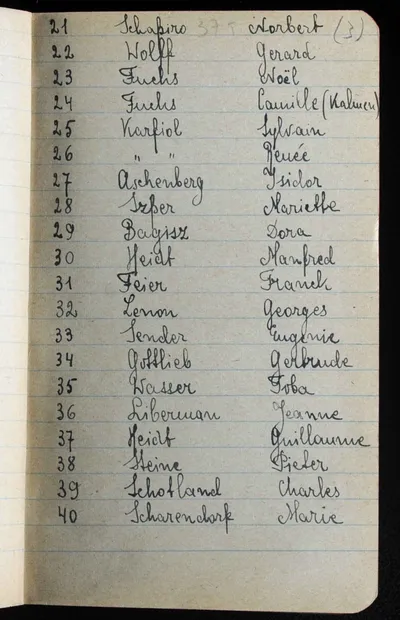 21 Schapiro 375 Norbert (3)
22 Wolff Gerard
23 Fuchs Noël
24 Fuchs Camille (Kalmen)
25 Karfiol Sylvain
26 " " Renée
27 Aschenberg Isidor
28 Szper Mariette
29 Dora
30 Heidt Manfred
31 Feier Franck
32 Lenon Georges
33 Sender Eugenie
34 Gottlieb Gertrude
35 Wasser Toba
36 Liberman Jeanne
37 Heidt Guillaume
38 Steine Pieter
39 Schotland Charles
40 Scharendorf Marie